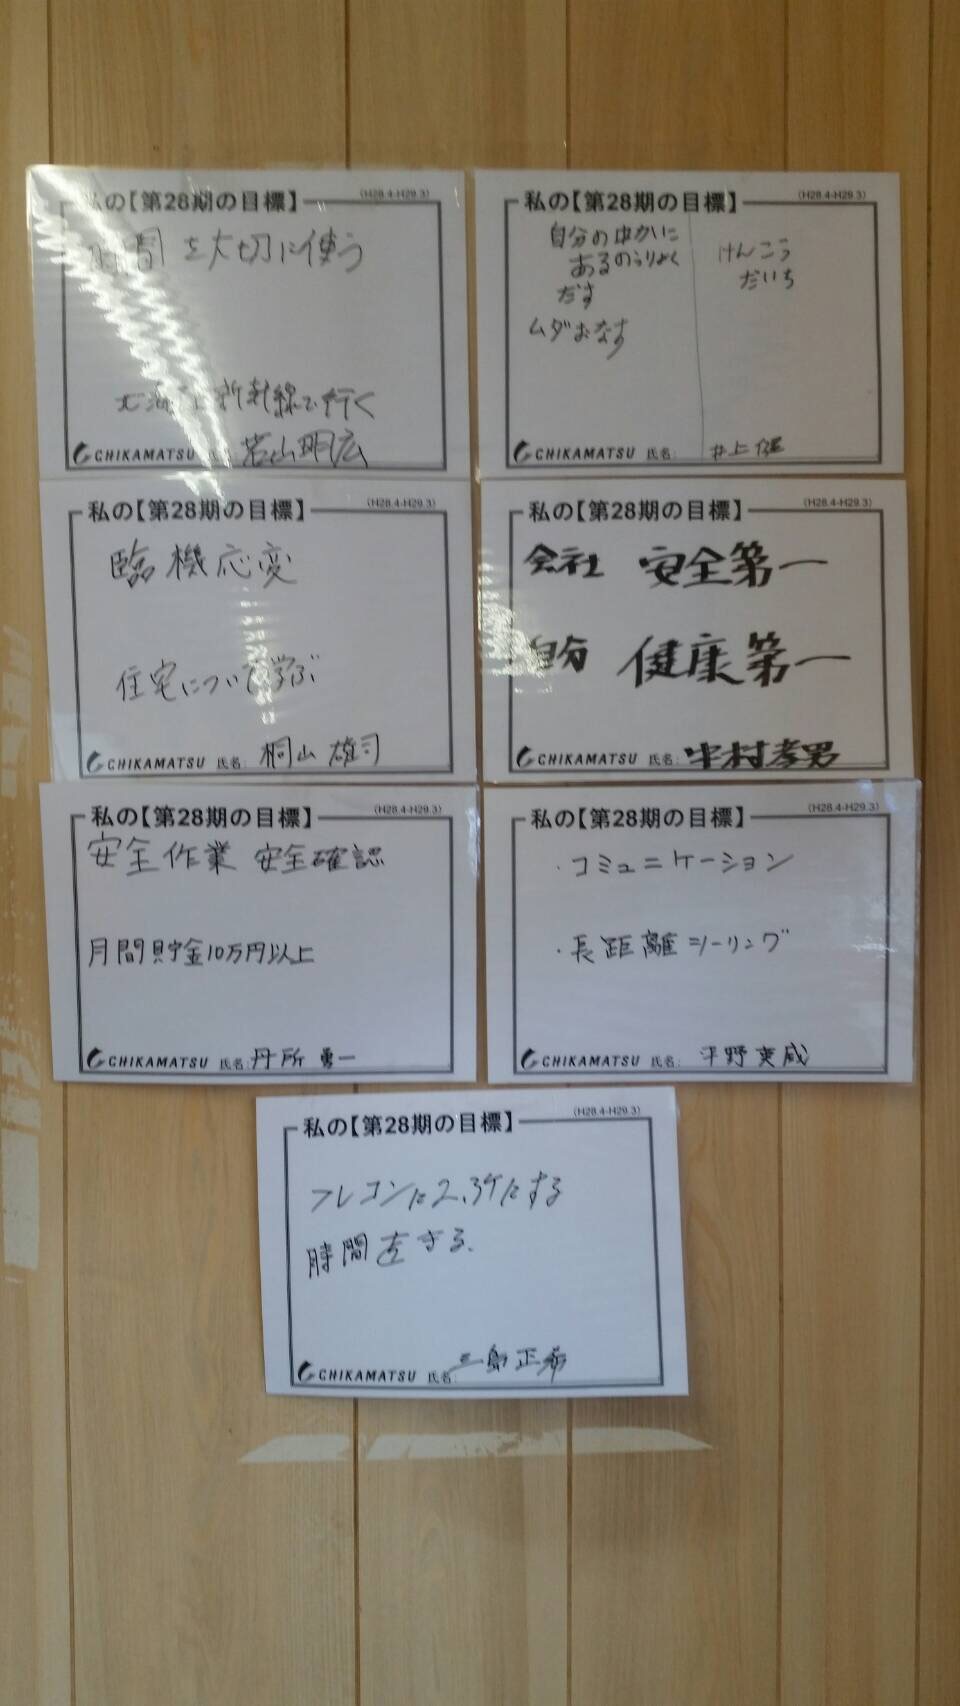 私の【第28期の目標】
(H28.4-H29.3)
時間を大切に使う
北海道新幹線で行く
CHIKAMATSU 氏名: 若山明広
私の【第28期の目標】
(H28.4-H29.3)
自分のなかに
あるのうりょく
だす
ムダおなす
けんこう
だいち
CHIKAMATSU 氏名: 井上
私の【第28期の目標】
(H28.4-H29.3)
臨機応変
住宅について学ぶ
CHIKAMATSU 氏名: 桐山雄司
私の【第28期の目標】
(H28.4-H29.3)
会社 安全第一
自分 健康第一
CHIKAMATSU 氏名: 中村孝男
私の【第28期の目標】
(H28.4-H29.3)
安全作業 安全確認
月間貯金10万円以上
CHIKAMATSU 氏名: 丹所勇一
私の【第28期の目標】
(H28.4-H29.3)
・コミュニケーション
・長距離シーリング
CHIKAMATSU 氏名: 平野爽威
私の【第28期の目標】
(H28.4-H29.3)
フレコンに2,3ケにする
時間をきる.
CHIKAMATSU 氏名: 三島正希